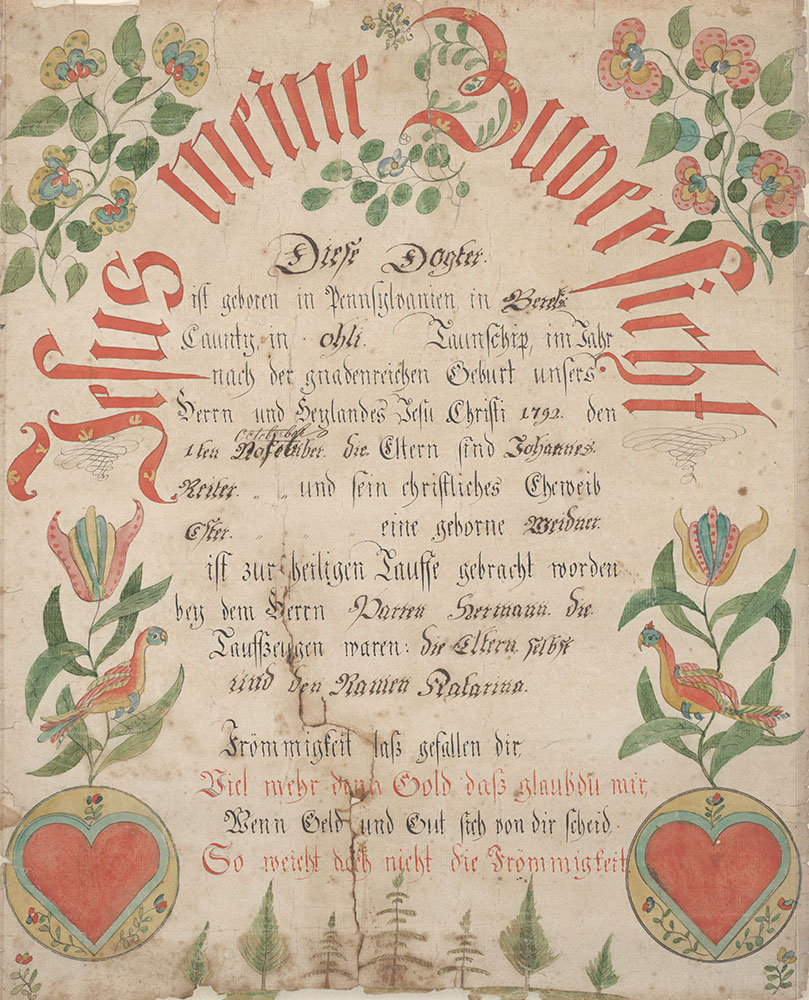 Jesus meine Zuversicht
Diese Dogter.
ist geboren in Pennsylvanien, in Berks
Caunty, in ohli. Taunschip, im Jahr
nach der gnadenreichen Geburt unsers
Herrn und Heylandes Jesu Christi 1792. den
October
1ten November. die Eltern sind Johannes.
Reiter. und sein christliches Eheweib
Ester. eine geborne Weidner.
ist zur heiligen Tauffe gebracht worden
bey dem Herrn Parren Hermann. die
Tauffzeugen waren: die Eltern selbst
und den Namen Katarina.
Frömmigkeit laß gefallen dir,
Viel mehr denn Gold daß glaub du mir,
Wenn Geld und Gut sich von dir scheid,
So weicht doch nicht die Frömmigkeit